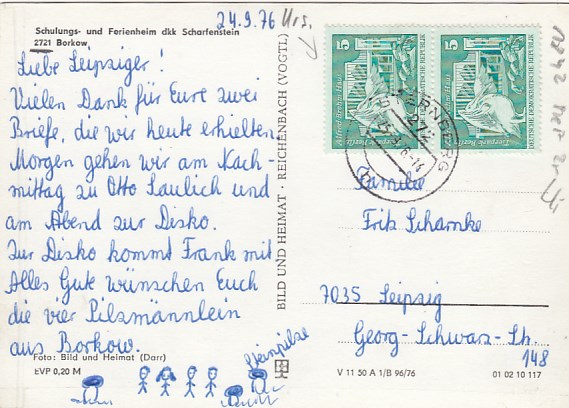 24.9.76 Urs.
Schulungs- und Ferienheim dkk Scharfenstein
2721 Borkow
Liebe Leipziger!
Vielen Dank für Eure zwei
Briefe, die wir heute erhielten.
Morgen gehen wir am Nach-
mittag zu Otto Saulich und
am Abend zur Disko.
Zur Disko kommt Frank mit
Alles Gute wünschen Euch
die vier Pilzmännlein
aus Borkow.
Foto: Bild und Heimat (Darr)
EVP 0,20 M
Steinpilze
BILD UND HEIMAT · REICHENBACH (VOGTL)
5
5
Tierpark Berlin
Tierpark Berlin
Familie
Fritz Scharnke
7035 Leipzig
Georg-Schwarz-Str.
148
V 11 50 A 1/B 96/76
01 02 10 117